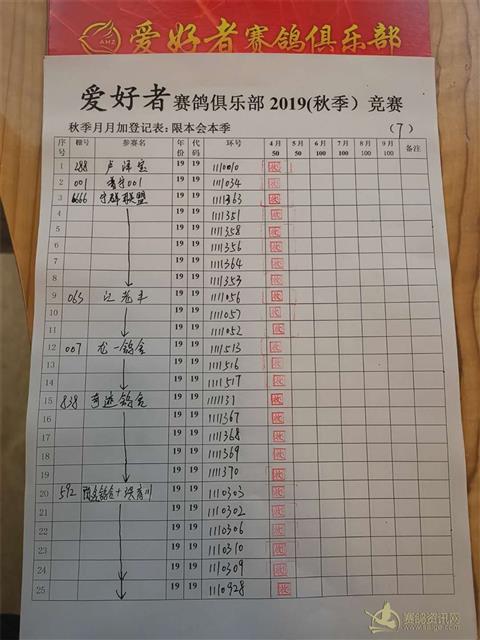 AHZ 爱好者赛鸽俱乐部
爱好者 赛鸽俱乐部 2019(秋季) 竞赛
秋季月月加登记表:限本会本季 (7)
序号 棚号 参赛名 年份 代码 环号 4月50 5月50 6月100 7月100 8月100 9月100 备注
1 188 卢泽宝 19 19 1110010 收
2 001 001 19 19 1111034 收
3 6666 宇群联盟 19 19 1111363 收
4 19 19 1111351 收
5 19 19 1111358 收
6 19 19 1111356 收
7 19 19 1111364 收
8 19 19 1111353 收
9 065 江老丰 19 19 1111056 收
10 19 19 1111057 收
11 19 19 1111052 收
12 007 龙一鸽舍 19 19 1111513 收
13 19 19 1111516 收
14 19 19 1111517 收
15 838 奇迹鸽舍 19 19 1111131 收
16 19 19 1111367 收
17 19 19 1111368 收
18 19 19 1111369 收
19 19 19 1111370 收
20 592 19 19 1110303 收
21 19 19 1110302 收
22 19 19 1110306 收
23 19 19 1110310 收
24 19 19 1110309 收
25 19 19 1110928 收
赛鸽资讯网